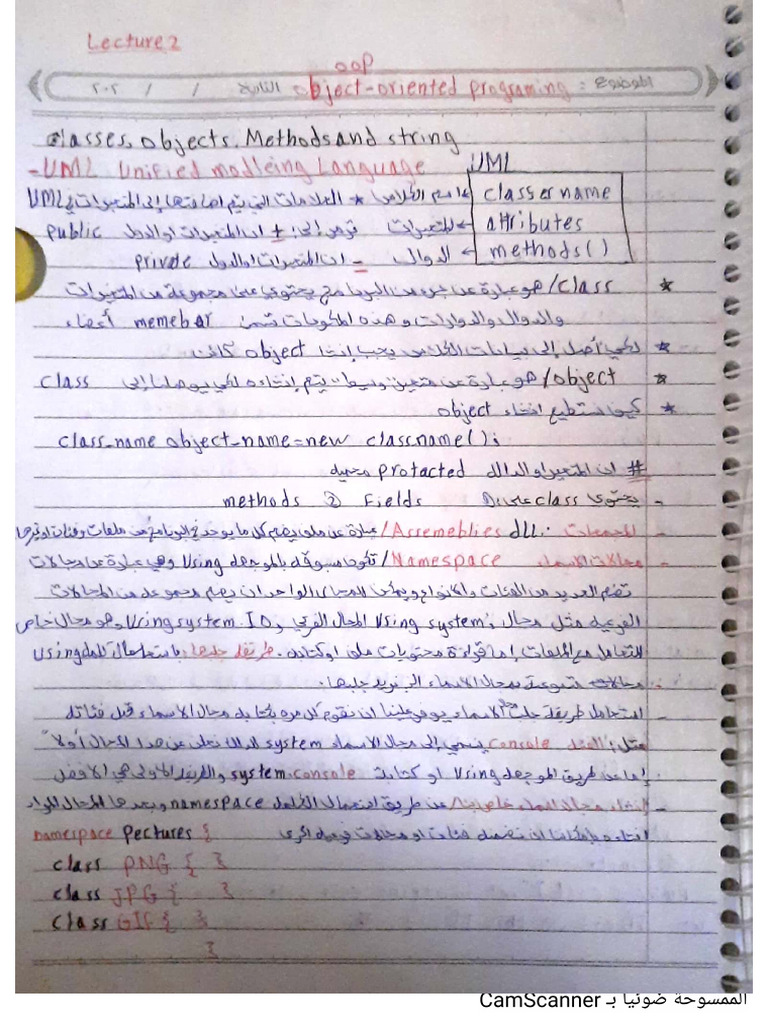 Lecture 2
oop
الموضوع : object-oriented programing التاريخ / / ٢٠٢
classes, objects, Methods and string
-UML Unified modleing Language
UML
class er name
attributes
methods ()
اسم الكلاس * العلامات التي يتم اضافتها إلى المتغيرات في UML
للمتغيرات ترمز إلى: + ان المتغيرات او الدول public
الدوال - ان المتغيرات او الدول private
* class/ هو عبارة عن جزء من البرنامج يحتوي على مجموعة من المتغيرات
والدوال والدوارات وهذه المكونات تسمى memebar أعضاء
* لكي أصل إلى بيانات الكلاس يجب إنشا object كائن
* object/ هو عبارة عن متغير وسيط يتم إنشاءه لكي يوصلنا إلى class
* كيف نستطيع انشاء object
class_name object_name = new classname();
# ان المتغير او الداله protacted محميه
- يحتوي class على ① Fields ② methods
- المجمعات .dll Assemeblies/ عبارة عن ملف يضم كل ما يوجد في البرنامج من ملفات وفئات او غيرها
- مجالات الاسماء Namespace/ تكون مسبوقه بالموجه Using وهي عبارة عن مجالات
تضم العديد من الفئات والانواع ويمكن للمجال الواحد ان يضم مجموعه من المجالات
الفرعيه مثل مجال Using system; المجال الفرعي Using system.IO, وهو مجال خاص
للتعامل مع الملفات إما قراءة محتويات ملف او كتابه. طريقة جلبها: باستعمال كلمة Using
متبوعة بمجال الاسماء الي نريد جلبها.
- استعمال طريقة جلب مجال الاسماء يوفر علينا ان نقوم كل مره بكتابة مجال الاسماء قبل فئاته
مثل: الفئة console ينتمي إلى مجال الاسماء system لذلك نعلن عن هذا المجال أولاً
إما عن طريق الموجه Using او كتابة system.console والطريقة الاولى هي الافضل
- إنشاء مجال اسماء خاص بنا: عن طريق استعمال الكلمة namespace وبعدها المجال المراد
انشاءه وبإمكاننا ان نضمنه فئات او مجالات فرعيه اخرى
namespace Pectures {
class PNG { }
class JPG { }
class GIF { }
}
الممسوحة ضوئيا بـ CamScanner